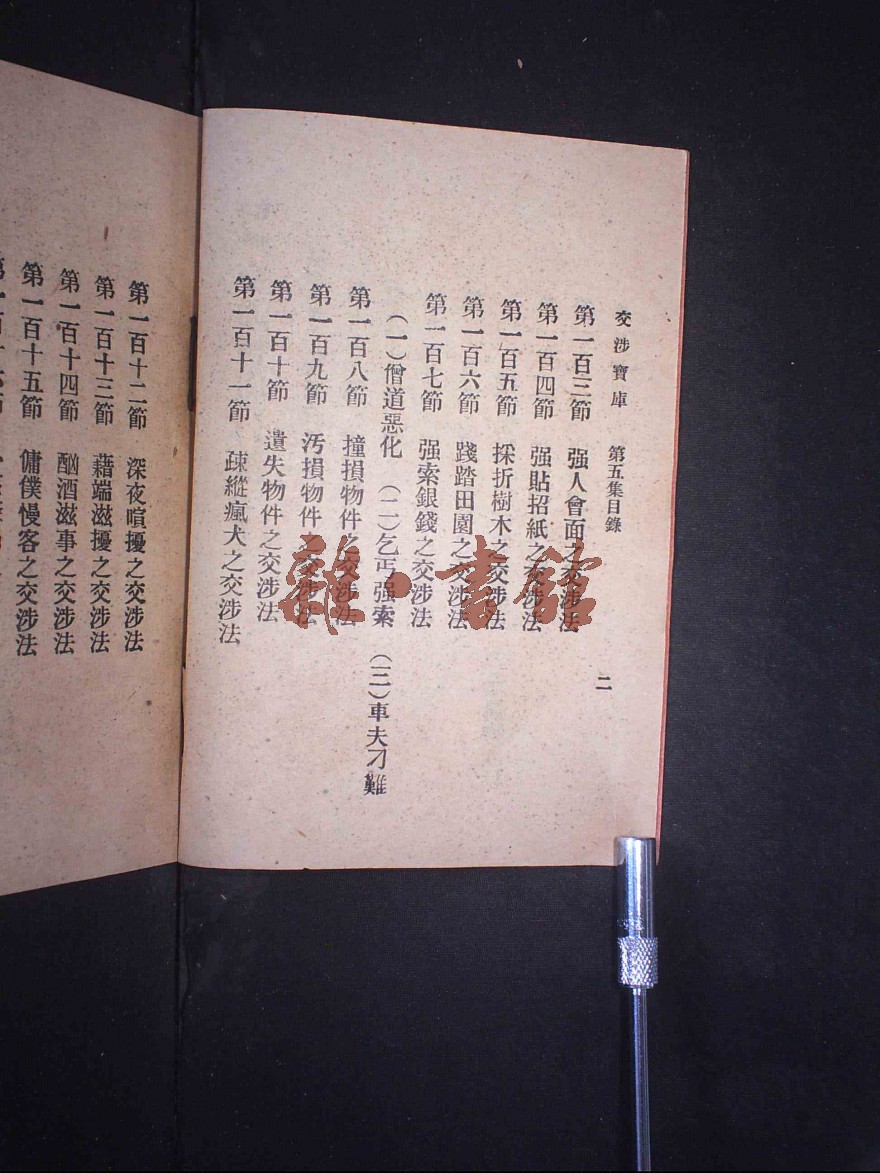 交涉寶庫　第五集目錄　二
第一百三節　强人會面之交涉法
第一百四節　强貼招紙之交涉法
第一百五節　採折樹木之交涉法
第一百六節　踐踏田園之交涉法
第一百七節　强索銀錢之交涉法
（一）僧道惡化　（二）乞丐强索　（三）車夫刁難
第一百八節　撞損物件之交涉法
第一百九節　汚損物件之交涉法
第一百十節　遺失物件之交涉法
第一百十一節　疎縱瘋犬之交涉法
第一百十二節　深夜喧擾之交涉法
第一百十三節　藉端滋擾之交涉法
第一百十四節　酗酒滋事之交涉法
第一百十五節　傭僕慢客之交涉法
書館